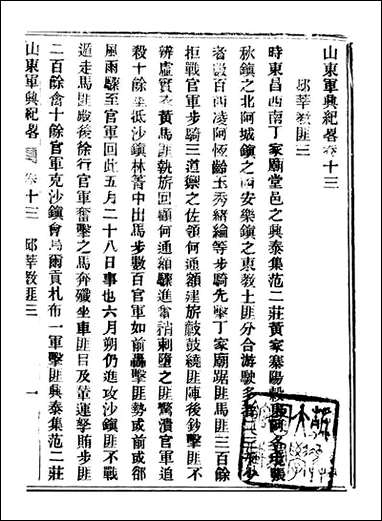 山東軍興紀畧卷十三
邱莘教匪三
時東昌西南丁家廟堂邑之興泰集范二莊黃家寨陽穀
秋鎮之北阿城鎮之西安樂鎮之東教土匪分合游駛多
者數百西凌阿恆齡玉秀緒綸等步騎先擊丁家廟踞匪馬匪三百餘
拒戰官軍步騎三道禦之佐領何通額建旂鼓鼓繞匪陣後鈔擊匪不
辨虛實衣黃馬匪執旂回顧何通額驟進奮梢刺墮之匪驚潰官軍追
殺十餘里抵沙鎮林菁中出馬步數百官軍如前轟擊匪勢或前或卻
風雨驟至官軍回此五月二十八日事也六月朔仍進攻沙鎮匪不戰
遁走馬匪殿後徐行官軍奮擊之馬奔殲坐車匪目及葷運孥賄步匪
二百餘禽十餘官軍克沙鎮會烏爾貢札布一軍擊匪興泰集范二莊
山東軍興紀畧 卷十三 邱莘教匪三 一